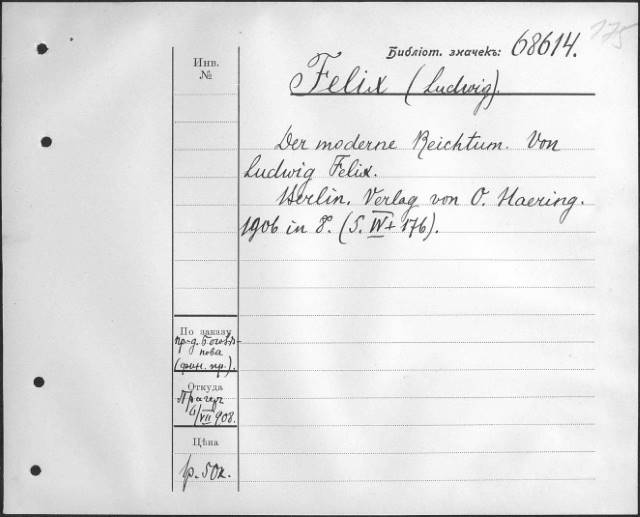 175
Библіот. значекъ: 68614.
Инв.
№
Felix (Ludwig).
Der moderne Reichtum. Von
Ludwig Felix.
Berlin. Verlag von O. Haering.
1906 in 8. (S. IV + 176).
По заказу
пр-д.
(фин. пр.).
Откуда
Прагеръ
/VII 908.
Цѣна
1р. 50к.